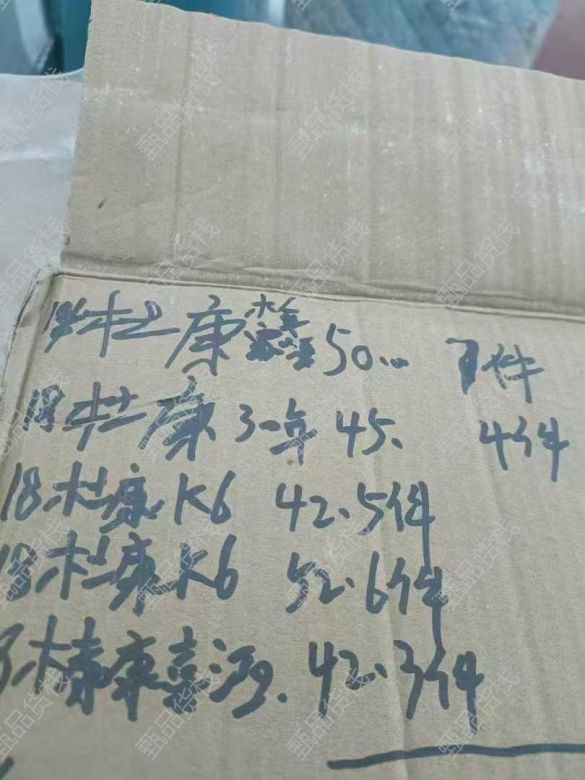 杜康 50 件
18杜康 3年 45. 4件
18.杜康K6 42.5件
18杜康K6 52.6件
康喜酒. 42.3件
甄品货栈